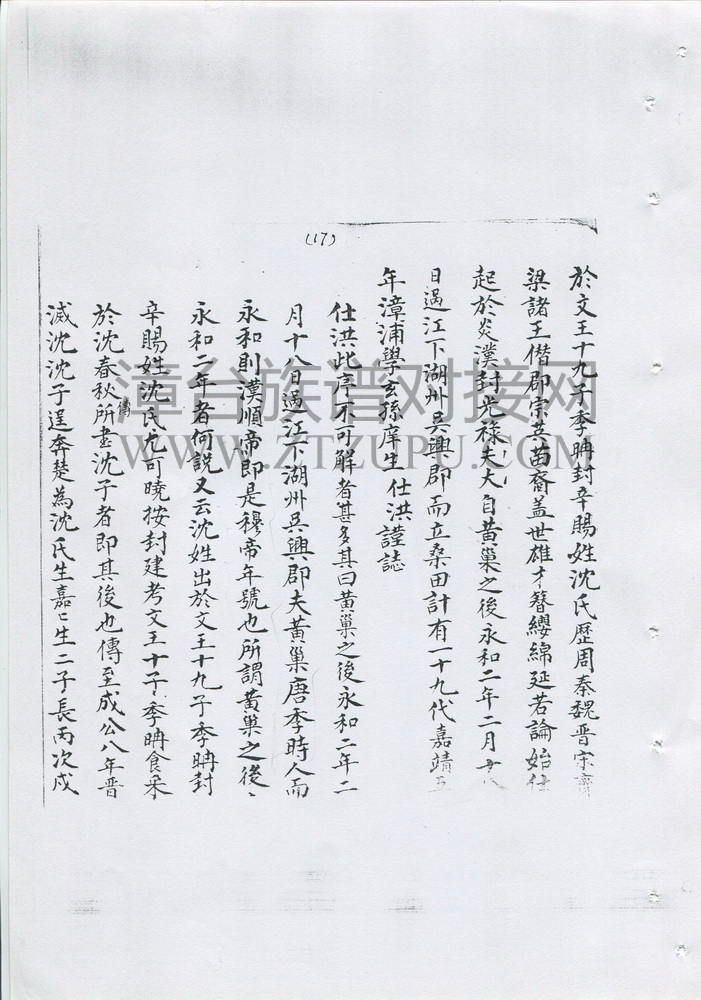 (17)
於文王十九子季冉封辛賜姓沈氏歷周秦魏晋宋齊
梁諸王僭郡宗英苗裔盖世雄才簪纓綿延若論始仕
起於炎漢封光祿夫大自黄巢之後永和二年二月十八
日過江下湖州吳興郡而立桑田計有一十九代嘉靖五
年漳浦學玄孫庠生仕洪謹誌
仕洪此序不可解者甚多其曰黄巢之後永和二年二
月十八日過江下湖州吳興郡夫黄巢唐季時人而
永和則漢順帝即是穆帝年號也所謂黄巢之後
永和二年者何説又云沈姓出於文王十九子季冉封
辛賜姓沈氏尤可曉按封建考文王十子季冉食采
於沈春秋傳所書沈子者即其後也傳至成公八年晋
滅沈沈子逞奔楚為沈氏生嘉〻生二子長丙次戍
漳台族谱对接网
WWW.ZTZUPU.COM